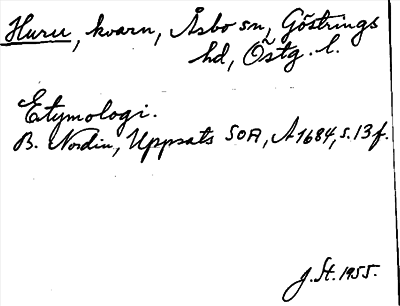 Huru, kvarn, Åsbo sn, Göstrings
hd, Östg. l.
Etymologi.
B. Nordin, Uppsats SOA, A 1684, s. 13 f.
J. St. 1955.